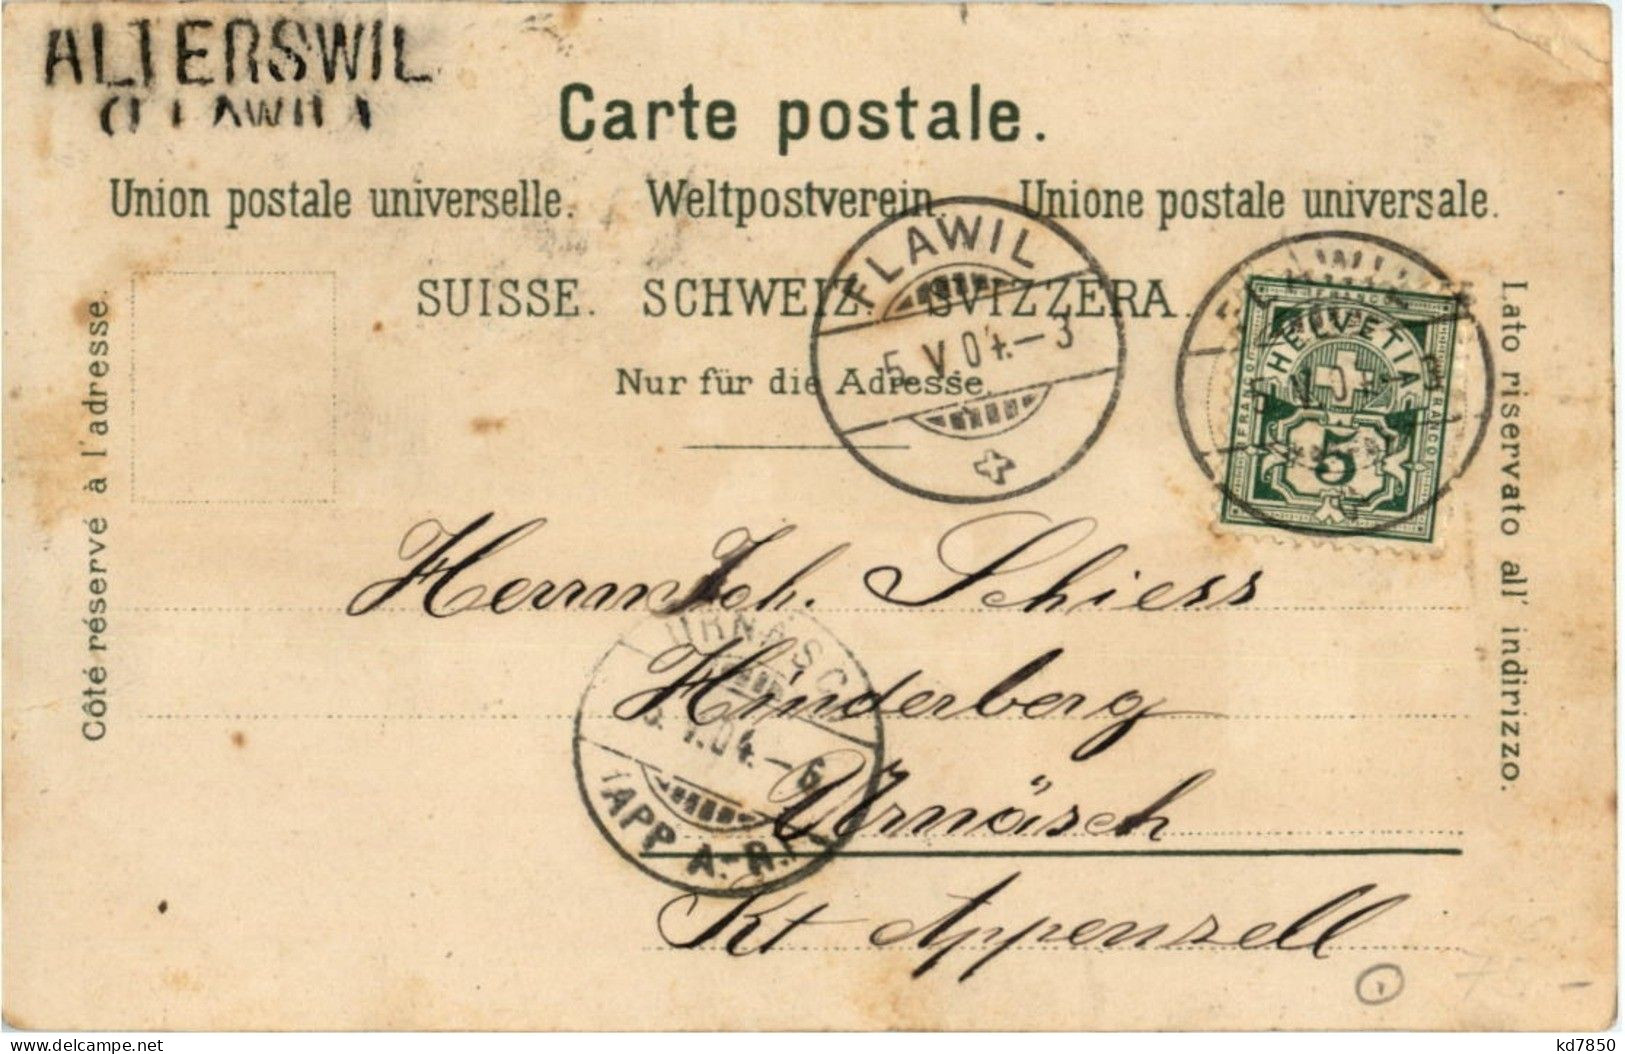 ALTERSWIL
(FLAWIL)
Carte postale.
Union postale universelle. Weltpostverein. Unione postale universale.
SUISSE. SCHWEIZ. SVIZZERA.
Nur für die Adresse.
Côté réservé à l'adresse.
Lato riservato all' indirizzo.
FLAWIL
5. V. 04.-3
FRANCO
HELVETIA
FRANCO
FRANCO
5
Herrn Joh. Schiess
Hinderberg
Urnäsch
Kt Appenzell
URNÄSCH
5. V. 04.-6
(APP. A.-R.H.)
75.-
kd7850